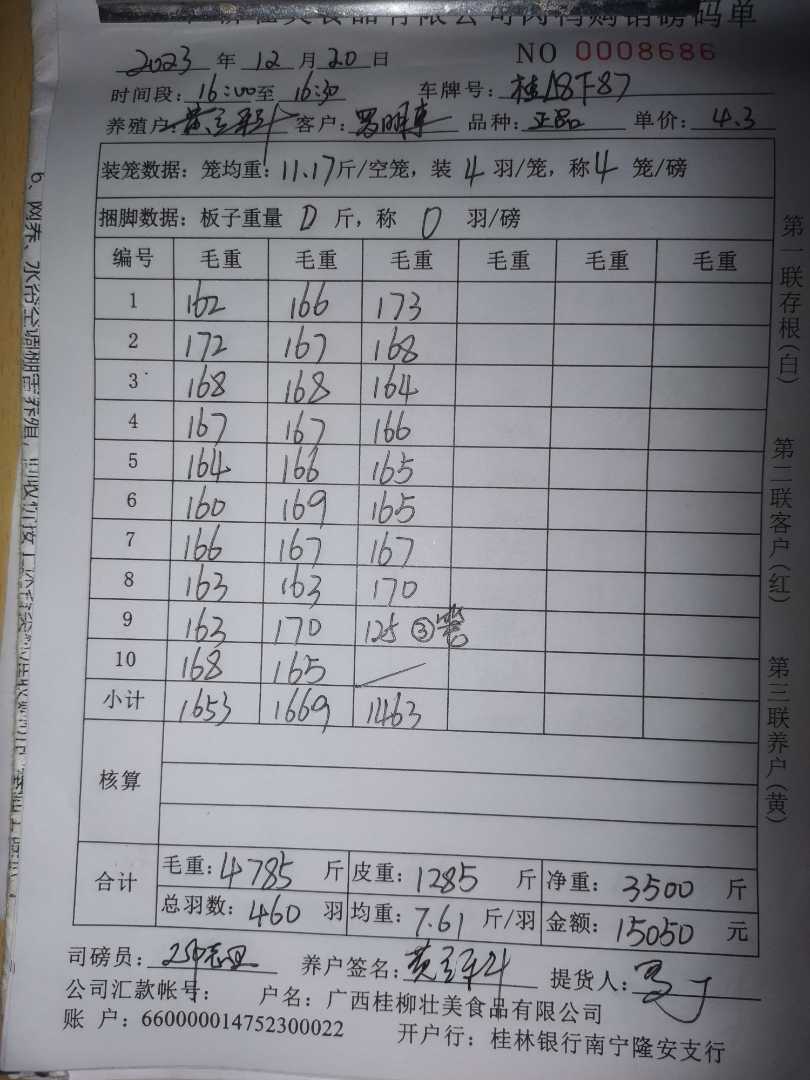 壮美食品有限公司肉鸭购销磅码单
2023 年 12 月 20 日 NO 0008686
时间段: 16:00至 16:30 车牌号: 桂A8F87
养殖户: 黄 客户: 罗明 品种: 正品 单价: 4.3
装笼数据: 笼均重: 11.17斤/空笼, 装 4 羽/笼, 称 4 笼/磅
捆脚数据: 板子重量 0 斤, 称 0 羽/磅
编号 毛重 毛重 毛重 毛重 毛重 毛重
1 162 166 173
2 172 167 168
3 168 168 164
4 167 167 166
5 164 166 165
6 160 169 165
7 166 167 167
8 163 163 170
9 163 170 125 ③笼
10 168 165
小计 1653 1669 1463
核算
合计 毛重: 4785 斤 皮重: 1285 斤 净重: 3500 斤
总羽数: 460 羽 均重: 7.61 斤/羽 金额: 15050 元
司磅员: 养户签名: 黄 提货人:
公司汇款帐号: 户名: 广西桂柳壮美食品有限公司
账 户: 660000014752300022 开户行: 桂林银行南宁隆安支行
第一联存根(白) 第二联客户(红) 第三联养户(黄)